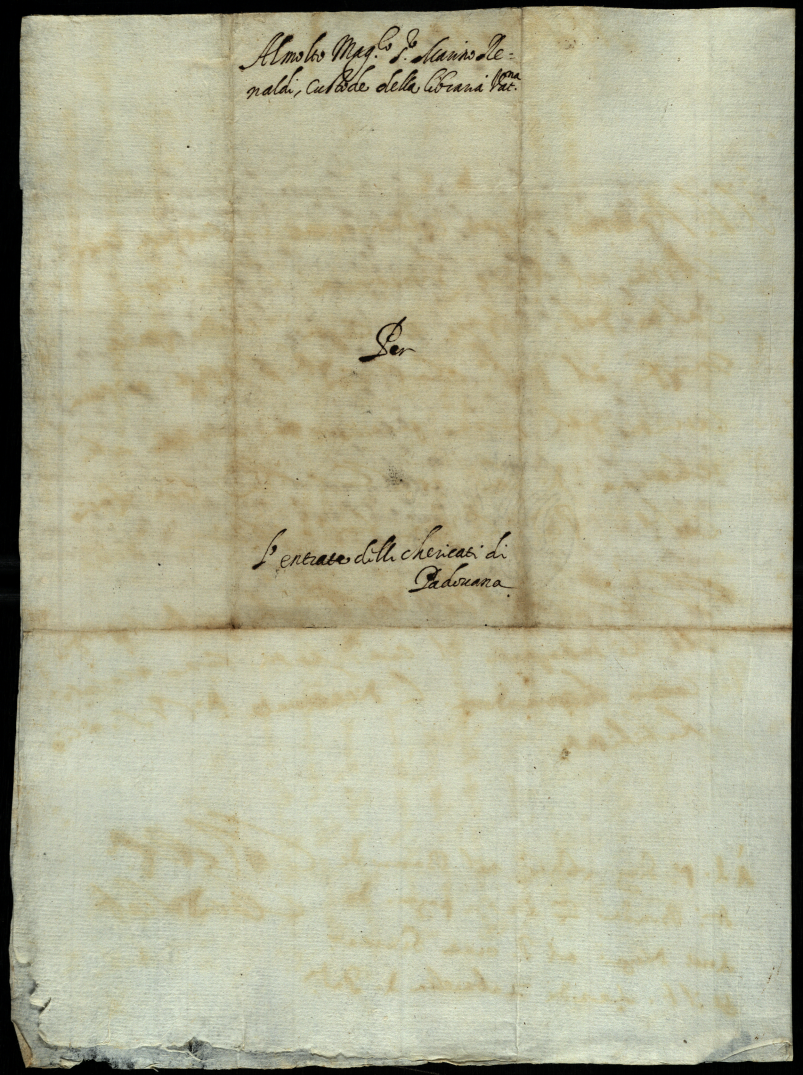 Al molto Mag.co S.r Marino Re=
naldi, custode della libraria Vat.na
Per
L'entrate delli chericati di
Padouana